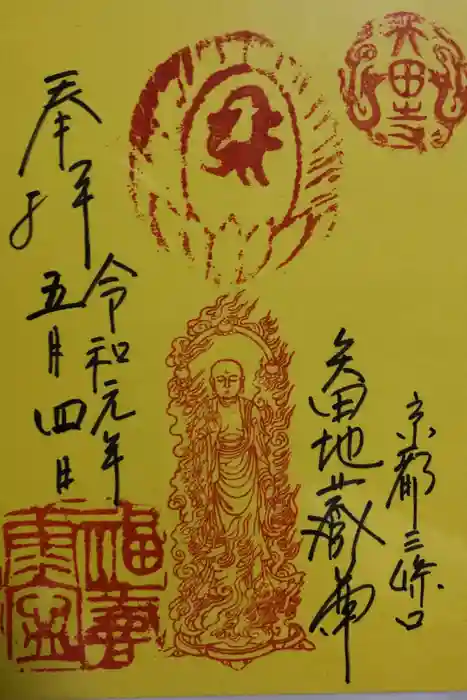 奉拝
令和元年
五月四日
矢田地蔵尊
京都三條口
矢田寺